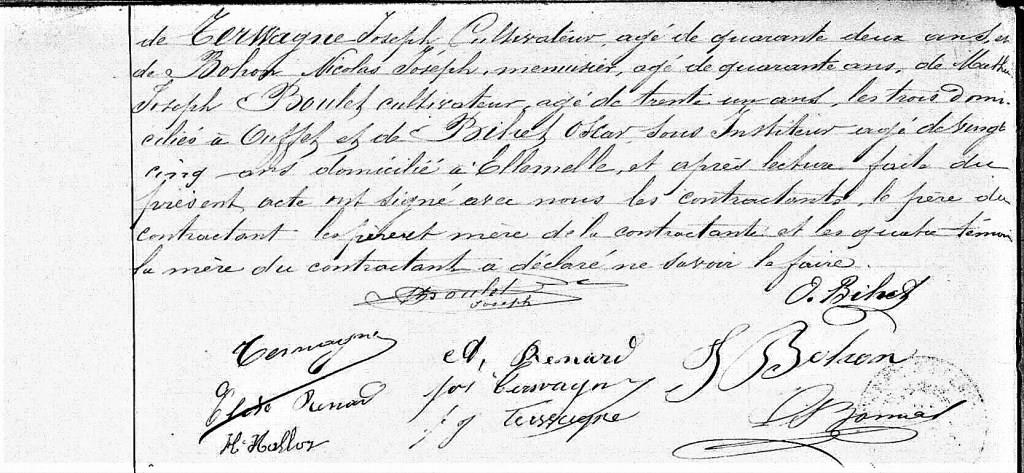 de Terwagne Joseph Cultivateur, agé de quarante deux ans, et
de Bohon Nicolas Joseph, menuisier, agé de quarante ans, de Mathieu
Joseph Boulet cultivateur, agé de trente un ans, les trois domi-
ciliés à Ouffet et de Bihet Oscar sous Instituteur agé de vingt
cinq ans domicilié à Ellemelle, et après lecture faite du
présent acte ont signé avec nous les contractants, le père du
contractant les père et mère de la contractante et les quatre témoins
la mère du contractant a déclaré ne savoir le faire.
Boulet
Joseph
O. Bihet
Terwagne
A, Renard
Bohon
Elise Renard
jos Terwagne
j g Terwagne
H. Hallos